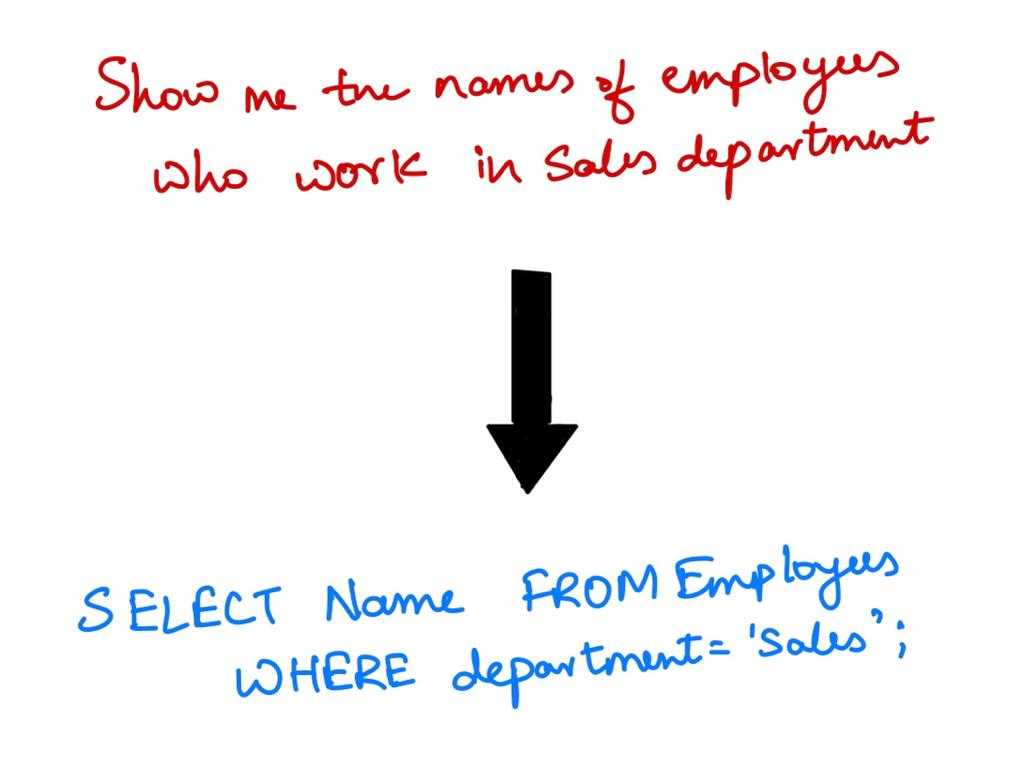 Show me the names of employees
who work in Sales department
SELECT Name FROM Employees
WHERE department = 'Sales';